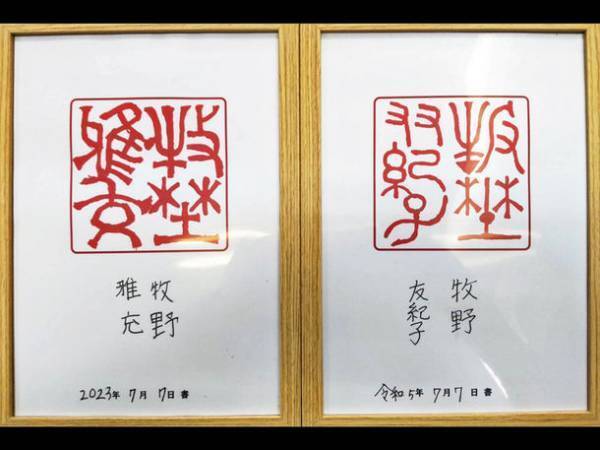 牧埜
雅充
牧野
雅充
2023年 7月 7日 書
牧埜
友紀子
牧野
友紀子
令和5年 7月 7日 書